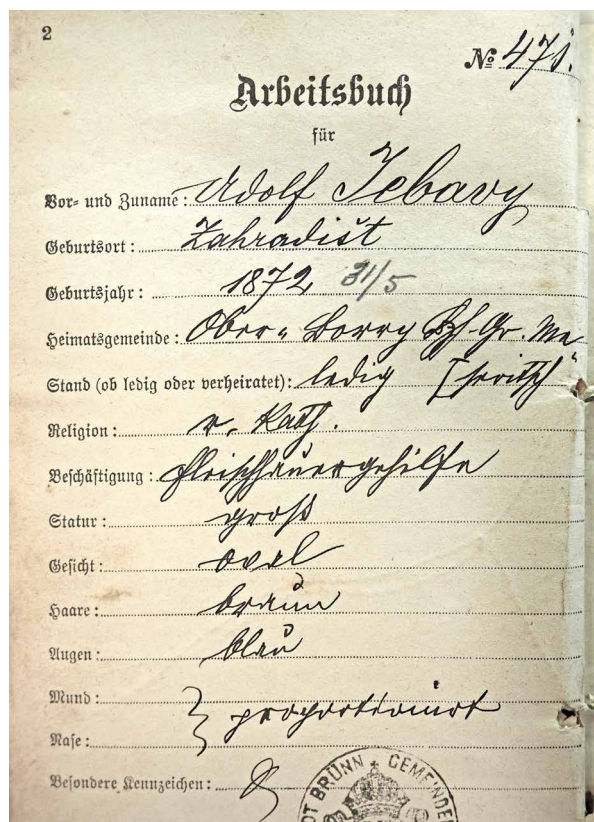 2
№ 471.
Arbeitsbuch
für
Vor- und Zuname: Adolf Jebavy
Geburtsort: Zahradišt
Geburtsjahr: 1872 31/5
Heimatsgemeinde: Ober-Borry Bzh. Gr. Me-
Stand (ob ledig oder verheiratet): ledig [seritsch
Religion: r. kath.
Beschäftigung: Fleischhauergehilfe
Statur: groß
Gesicht: oval
Haare: braun
Augen: blau
Mund: } proportionirt
Nase:
Besondere Kennzeichen:
BRÜNN GEMEINDE